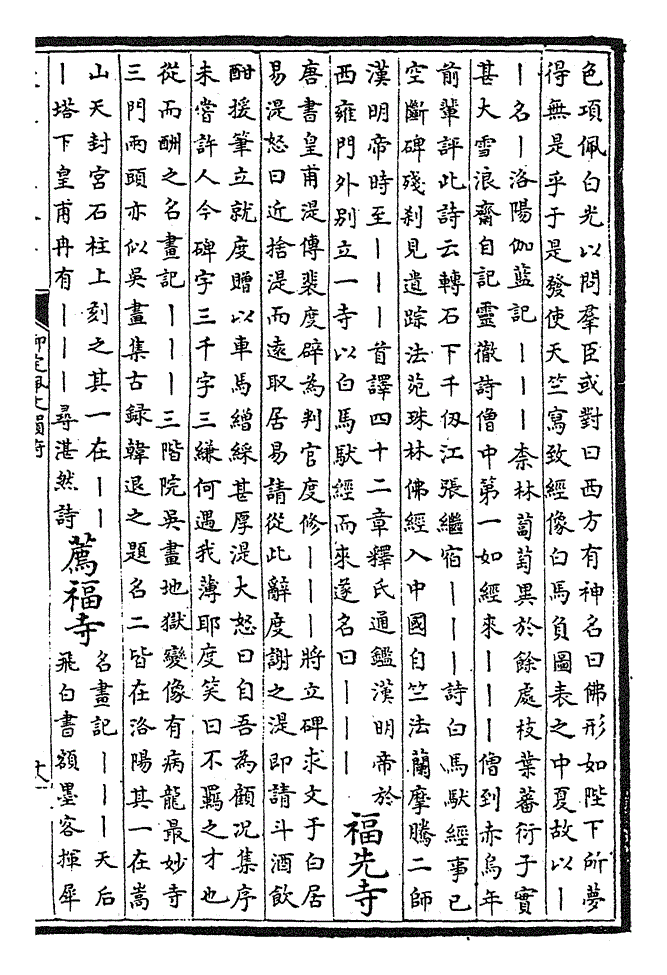 色項佩白光以問羣臣或對曰西方有神名曰佛形如陛下所夢
得無是乎于是發使天竺寫致經像白馬負圖表之中夏故以丨
丨名丨洛陽伽藍記丨丨丨柰林葡萄異於餘處枝葉蕃衍子實
甚大雪浪齋自記靈徹詩僧中第一如經來丨丨丨僧到赤烏年
前輩評此詩云轉石下千仭江張繼宿丨丨丨詩白馬馱經事已
空斷碑殘刹見遺踪法苑珠林佛經入中國自竺法蘭摩騰二師
漢明帝時至丨丨丨首譯四十二章釋氏通鑑漢明帝於
西雍門外别立一寺以白馬馱經而來遂名曰丨丨丨
福先寺
唐書皇甫湜傳裴度辟為判官度修丨丨丨將立碑求文于白居
易湜怒曰近捨湜而遠取居易請從此辭度謝之湜即請斗酒飲
酣援筆立就度贈以車馬繒綵甚厚湜大怒曰自吾為顧况集序
未嘗許人今碑字三千字三縑何遇我薄耶度笑曰不羈之才也
從而酬之名畫記丨丨丨三階院吳畫地獄變像有病龍最妙寺
三門兩頭亦似吳畫集古録韓退之題名二皆在洛陽其一在嵩
山天封宮石柱上刻之其一在丨丨
丨塔下皇甫冉有丨丨丨尋湛然詩
薦福寺
名畫記丨丨丨天后
飛白書額墨客揮犀
御定佩文韻府